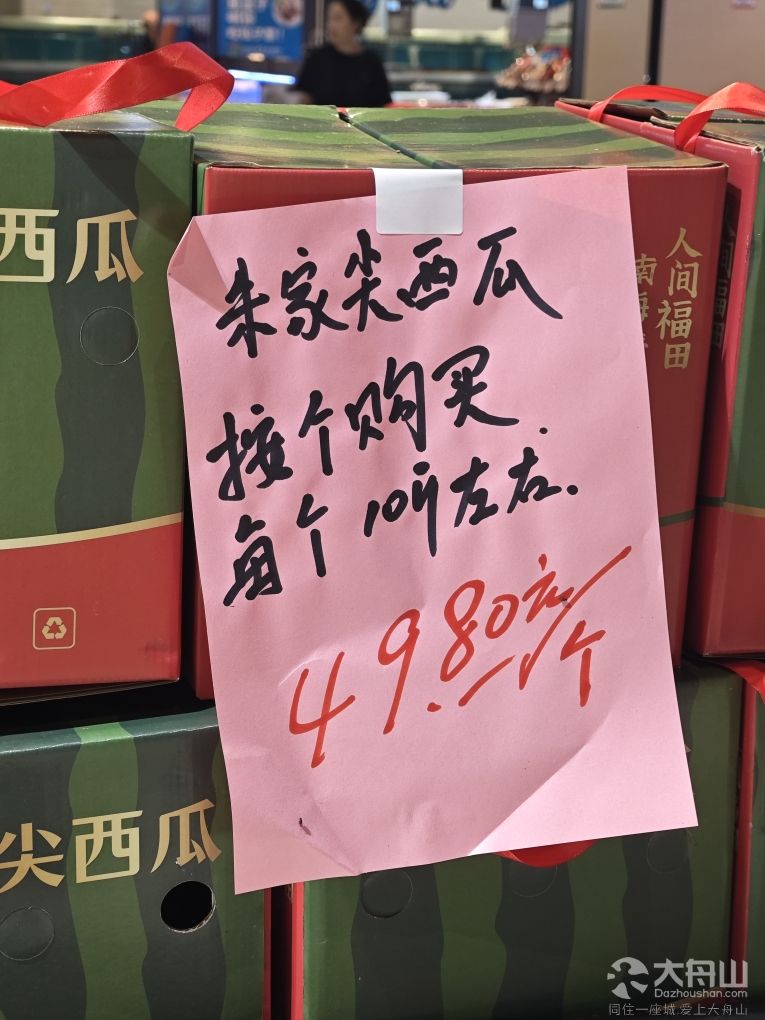 朱家尖西瓜
按个购买.
每个10斤左右.
49.80元/个
西瓜
人间福田
南海
人间福田
尖西瓜
大舟山
Dazhoushan.com
同住一座城.爱上大舟山